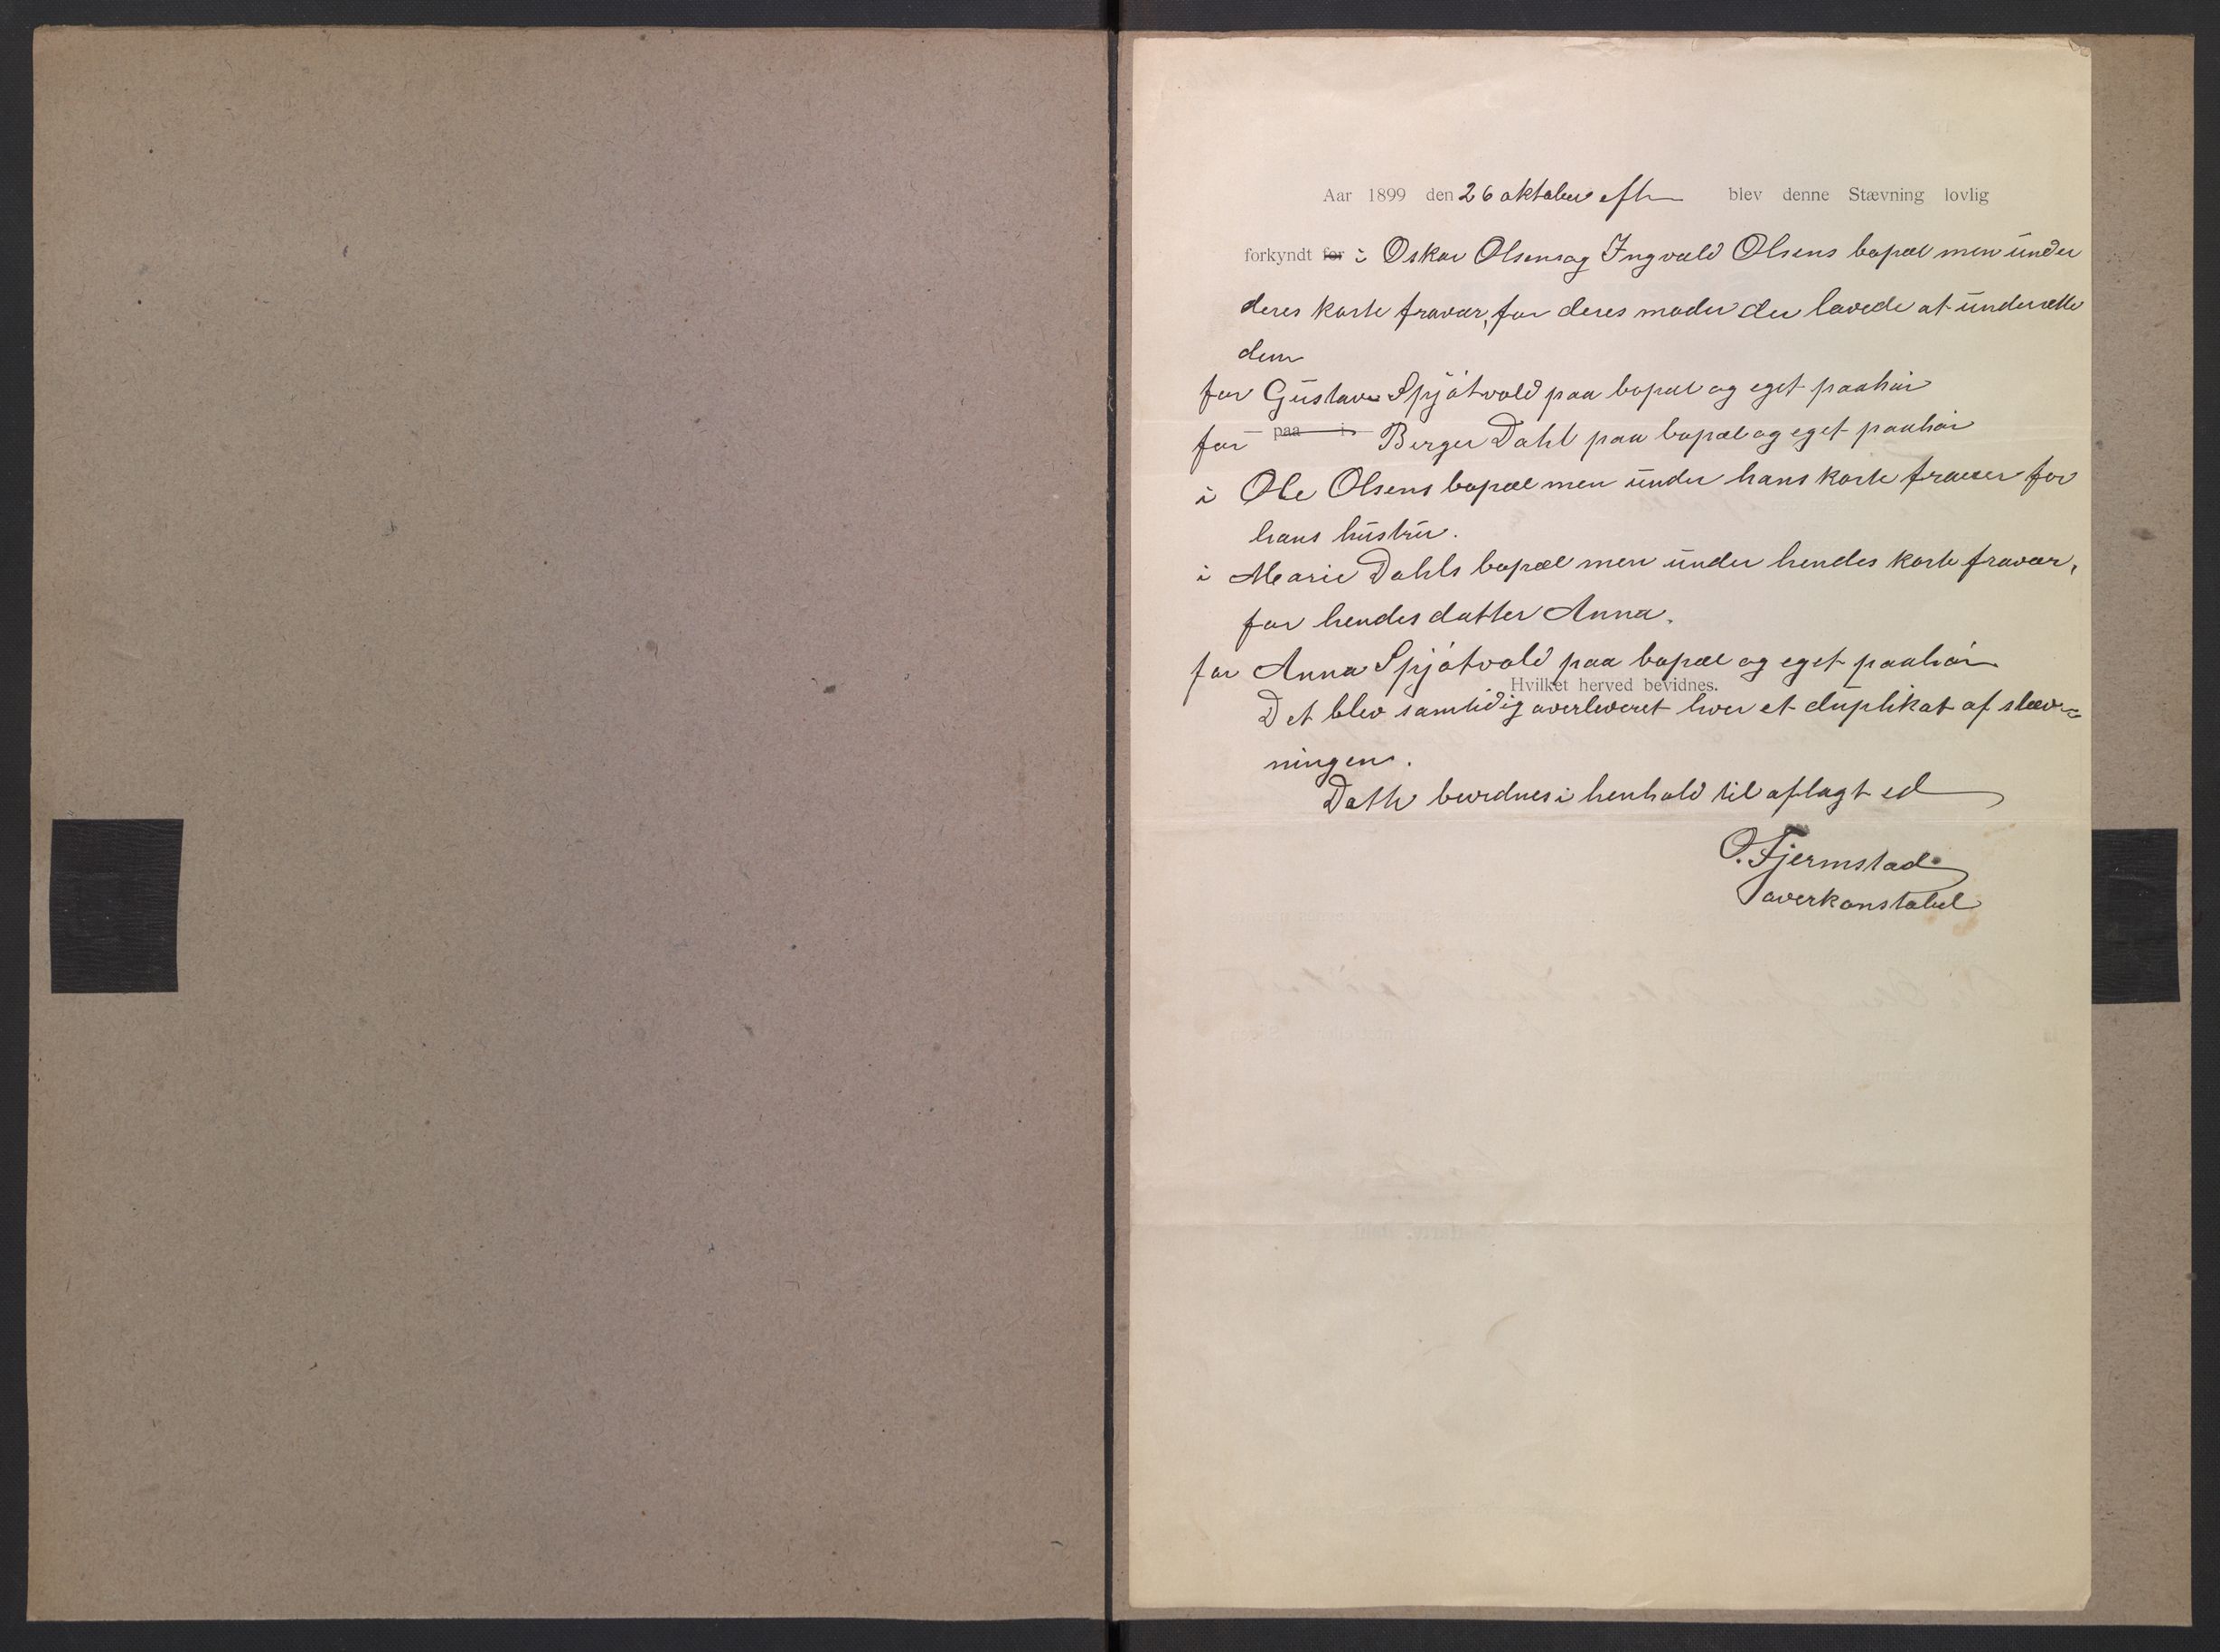 Aar 1899 den 26 oktober efter blev denne Stævning lovlig
forkyndt for i Oskar Olsens og Ingvald Olsens bopæl men under
deres korte fravær, for deres moder der lovede at underrette
dem
for Gustav Spjøtvold paa bopæl og eget paahør
for paa i Berger Dahl paa bopæl og eget paahør
i Ole Olsens bopæl men under hans korte fravær for
hans hustru.
i Marie Dahls bopæl men under hendes korte fravær,
for hendes datter Anna.
for Anna Spjøtvold paa bopæl og eget paahør
Hvilket herved bevidnes.
Det blev samtidig overleveret hver et duplikat af stæv=
ningen.
Dette bevidnes i henhold til aflagt ed
O. Fjermstad
overkonstabel